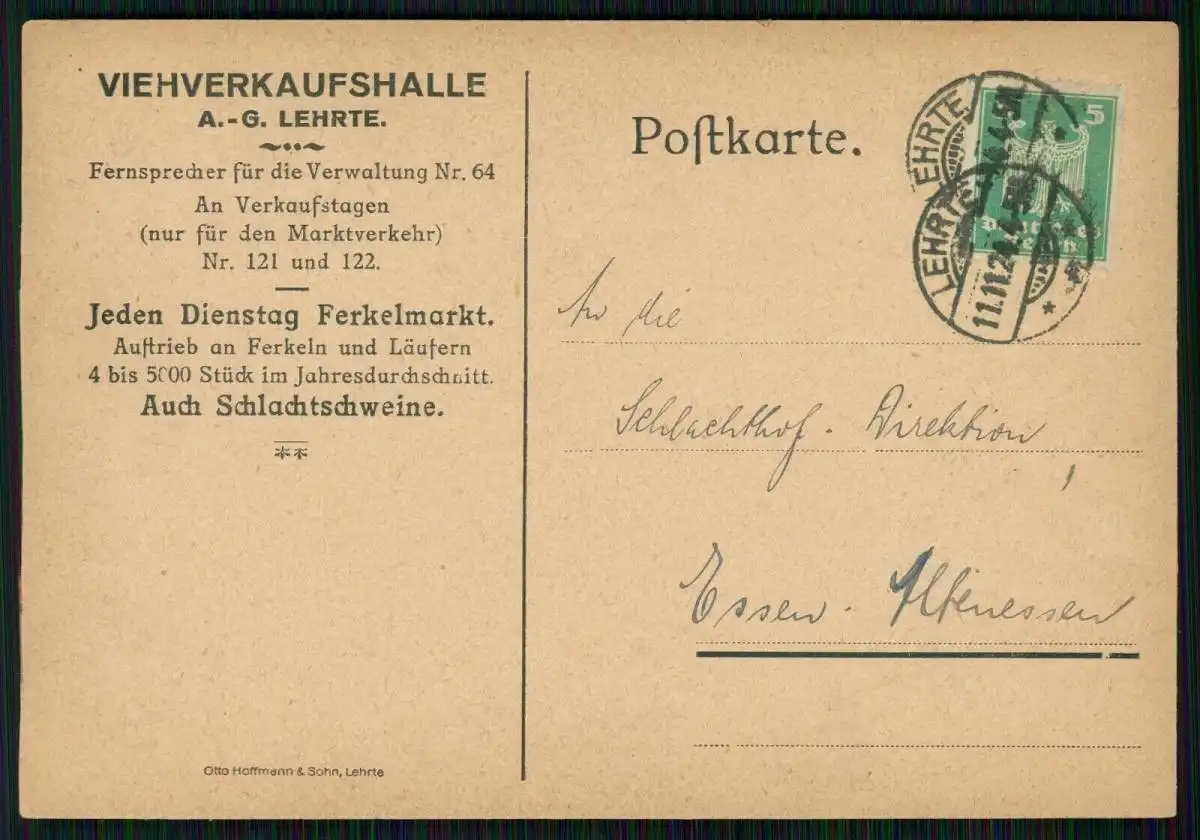 VIEHVERKAUFSHALLE
A.-G. LEHRTE.
Fernsprecher für die Verwaltung Nr. 64
An Verkaufstagen
(nur für den Marktverkehr)
Nr. 121 und 122.
Jeden Dienstag Ferkelmarkt.
Auftrieb an Ferkeln und Läufern
4 bis 5000 Stück im Jahresdurchschnitt.
Auch Schlachtschweine.
Otto Hoffmann & Sohn, Lehrte
Poſtkarte.
5
Deutsches
Reich
LEHRTE
LEHRTE
11.11.24.4-5N.
An die
Schlachthof - Direktion
Essen - Altenessen